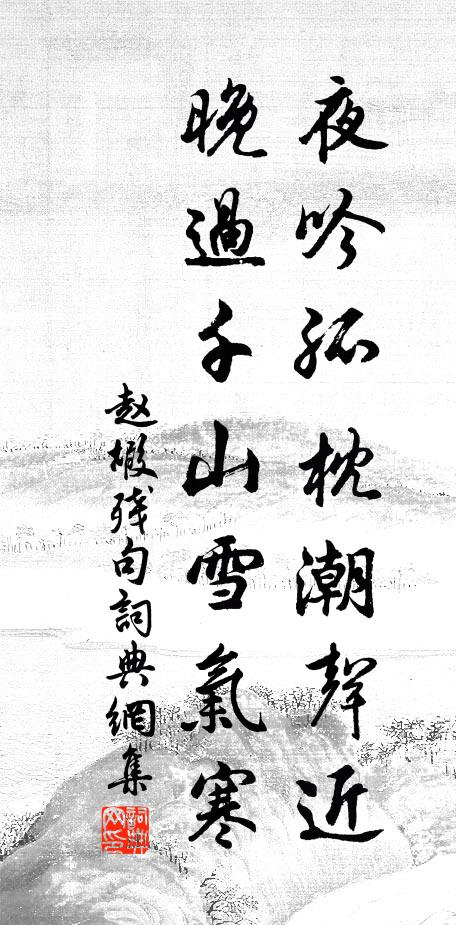 夜吟孤枕潮聲近
晚過千山雪氣寒
赵嘏残句詞典網集